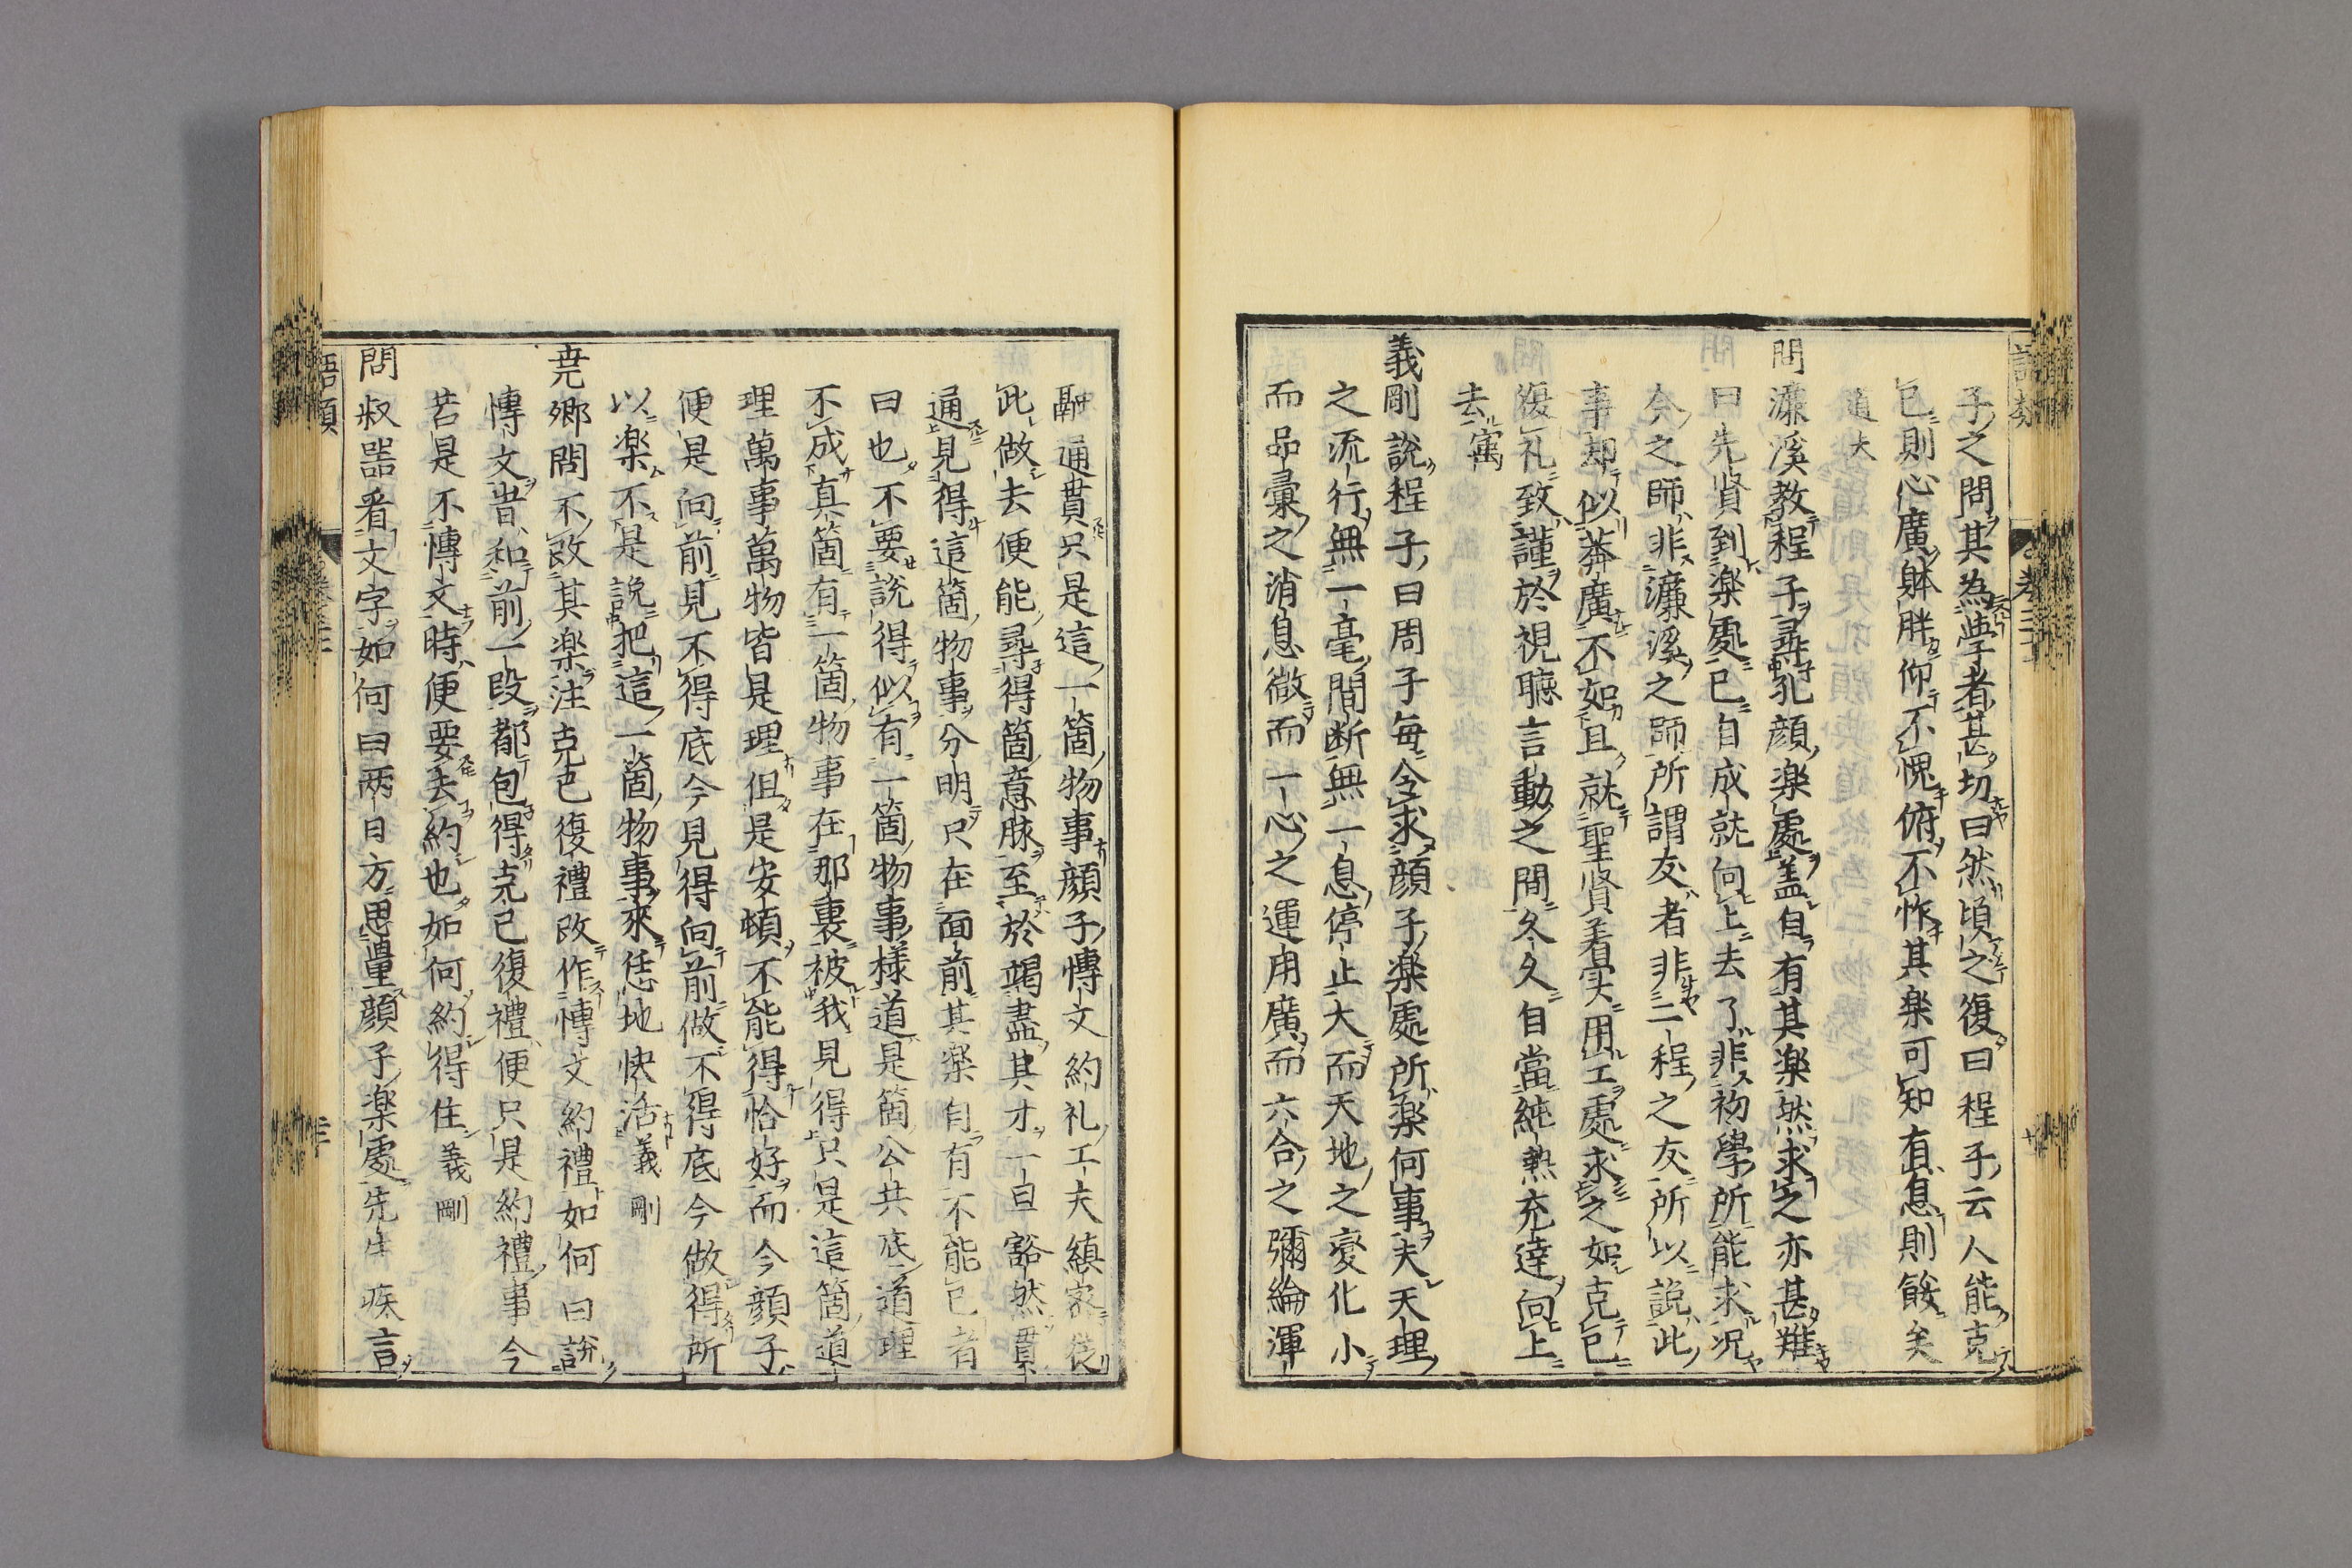 子之問其為学者甚切曰然頃之復曰程子云人能克
己則心廣躰胖仰不愧俯不怍其楽可知有息則餒矣
道夫
問濂溪教程子尋孔顔楽處盖自有其楽然求之亦甚難
曰先賢到楽處已自成就向上去了非初學所能求况
今之師非濂溪之師所謂友者非二程之友所以説此
事却似莽廣不如且就聖賢着実用工處求之如克己
復礼致謹於視聴言動之間久久自當純熟充達向上
去寓
義剛説程子曰周子毎令求顔子楽處所楽何事夫天理
之流行無一毫間断無一息停止大而天地之變化小
而品彙之消息微而一心之運用廣而六合之彌綸渾
融通貫只是這一箇物事顔子愽文約礼工夫縝密從
此做去便能尋得箇意脉至於竭盡其才一旦豁然貫
通見得這箇物事分明只在面前其楽自有不能已者
曰也不要説得似有一箇物事樣道是箇公共底道理
不成真箇有一箇物事在那裏被我見得只是這箇道
理萬事萬物皆是理但是安頓不能得恰好而今顔子
便是向前見不得底今見得向前做不得底今做得所
以楽不是説把這一箇物事來恁地快活義剛
尭卿問不改其楽注克己復禮改作愽文約禮如何曰説
愽文昔和前一段都包得克己復禮便只是約禮事今
若是不愽文時便要去約也如何約得住義剛
問叔器看文字如何曰兩日方思量顔子楽處先生疾言
語類
卷三十